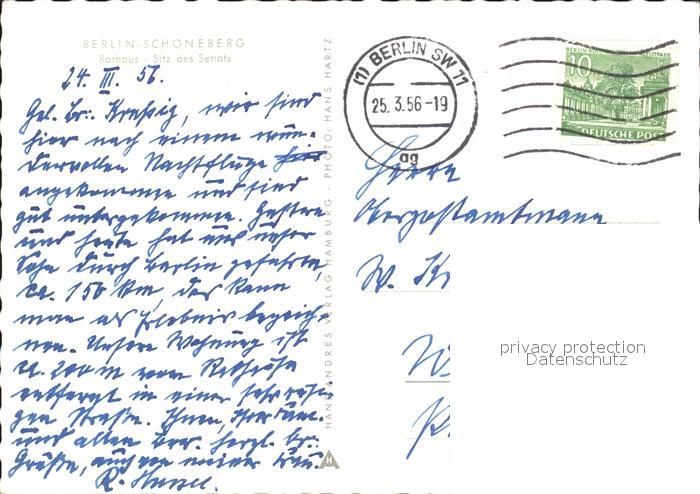 BERLIN-SCHÖNEBERG
Rathaus · Sitz des Senats
24. III. 56.
Gel. Br. wir sind
hier nach einem wun-
dervollen Nachtfluge hier
angekommen und sind
gut untergekommen. Gestern
und heute hat uns unser
Sohn durch Berlin gefahren,
ca. 150 km, das kann
man als Erlebnis bezeich-
nen. Unsere Wohnung ist
ca. 200 m vom Rathause
entfernt in einer sehr
gen Straße. Ihnen,
und allen Brr. herzl. br.
Grüße, auch von meiner Frau.
R.
HANS ANDRES VERLAG HAMBURG · PHOTO: HANS HARTZ
H
(1) BERLIN SW 11
25. 3. 56 - 19
ag
10
DEUTSCHE POST
Herrn
Oberpostamtmann
W. Kr
W
K
privacy protection
Datenschutz